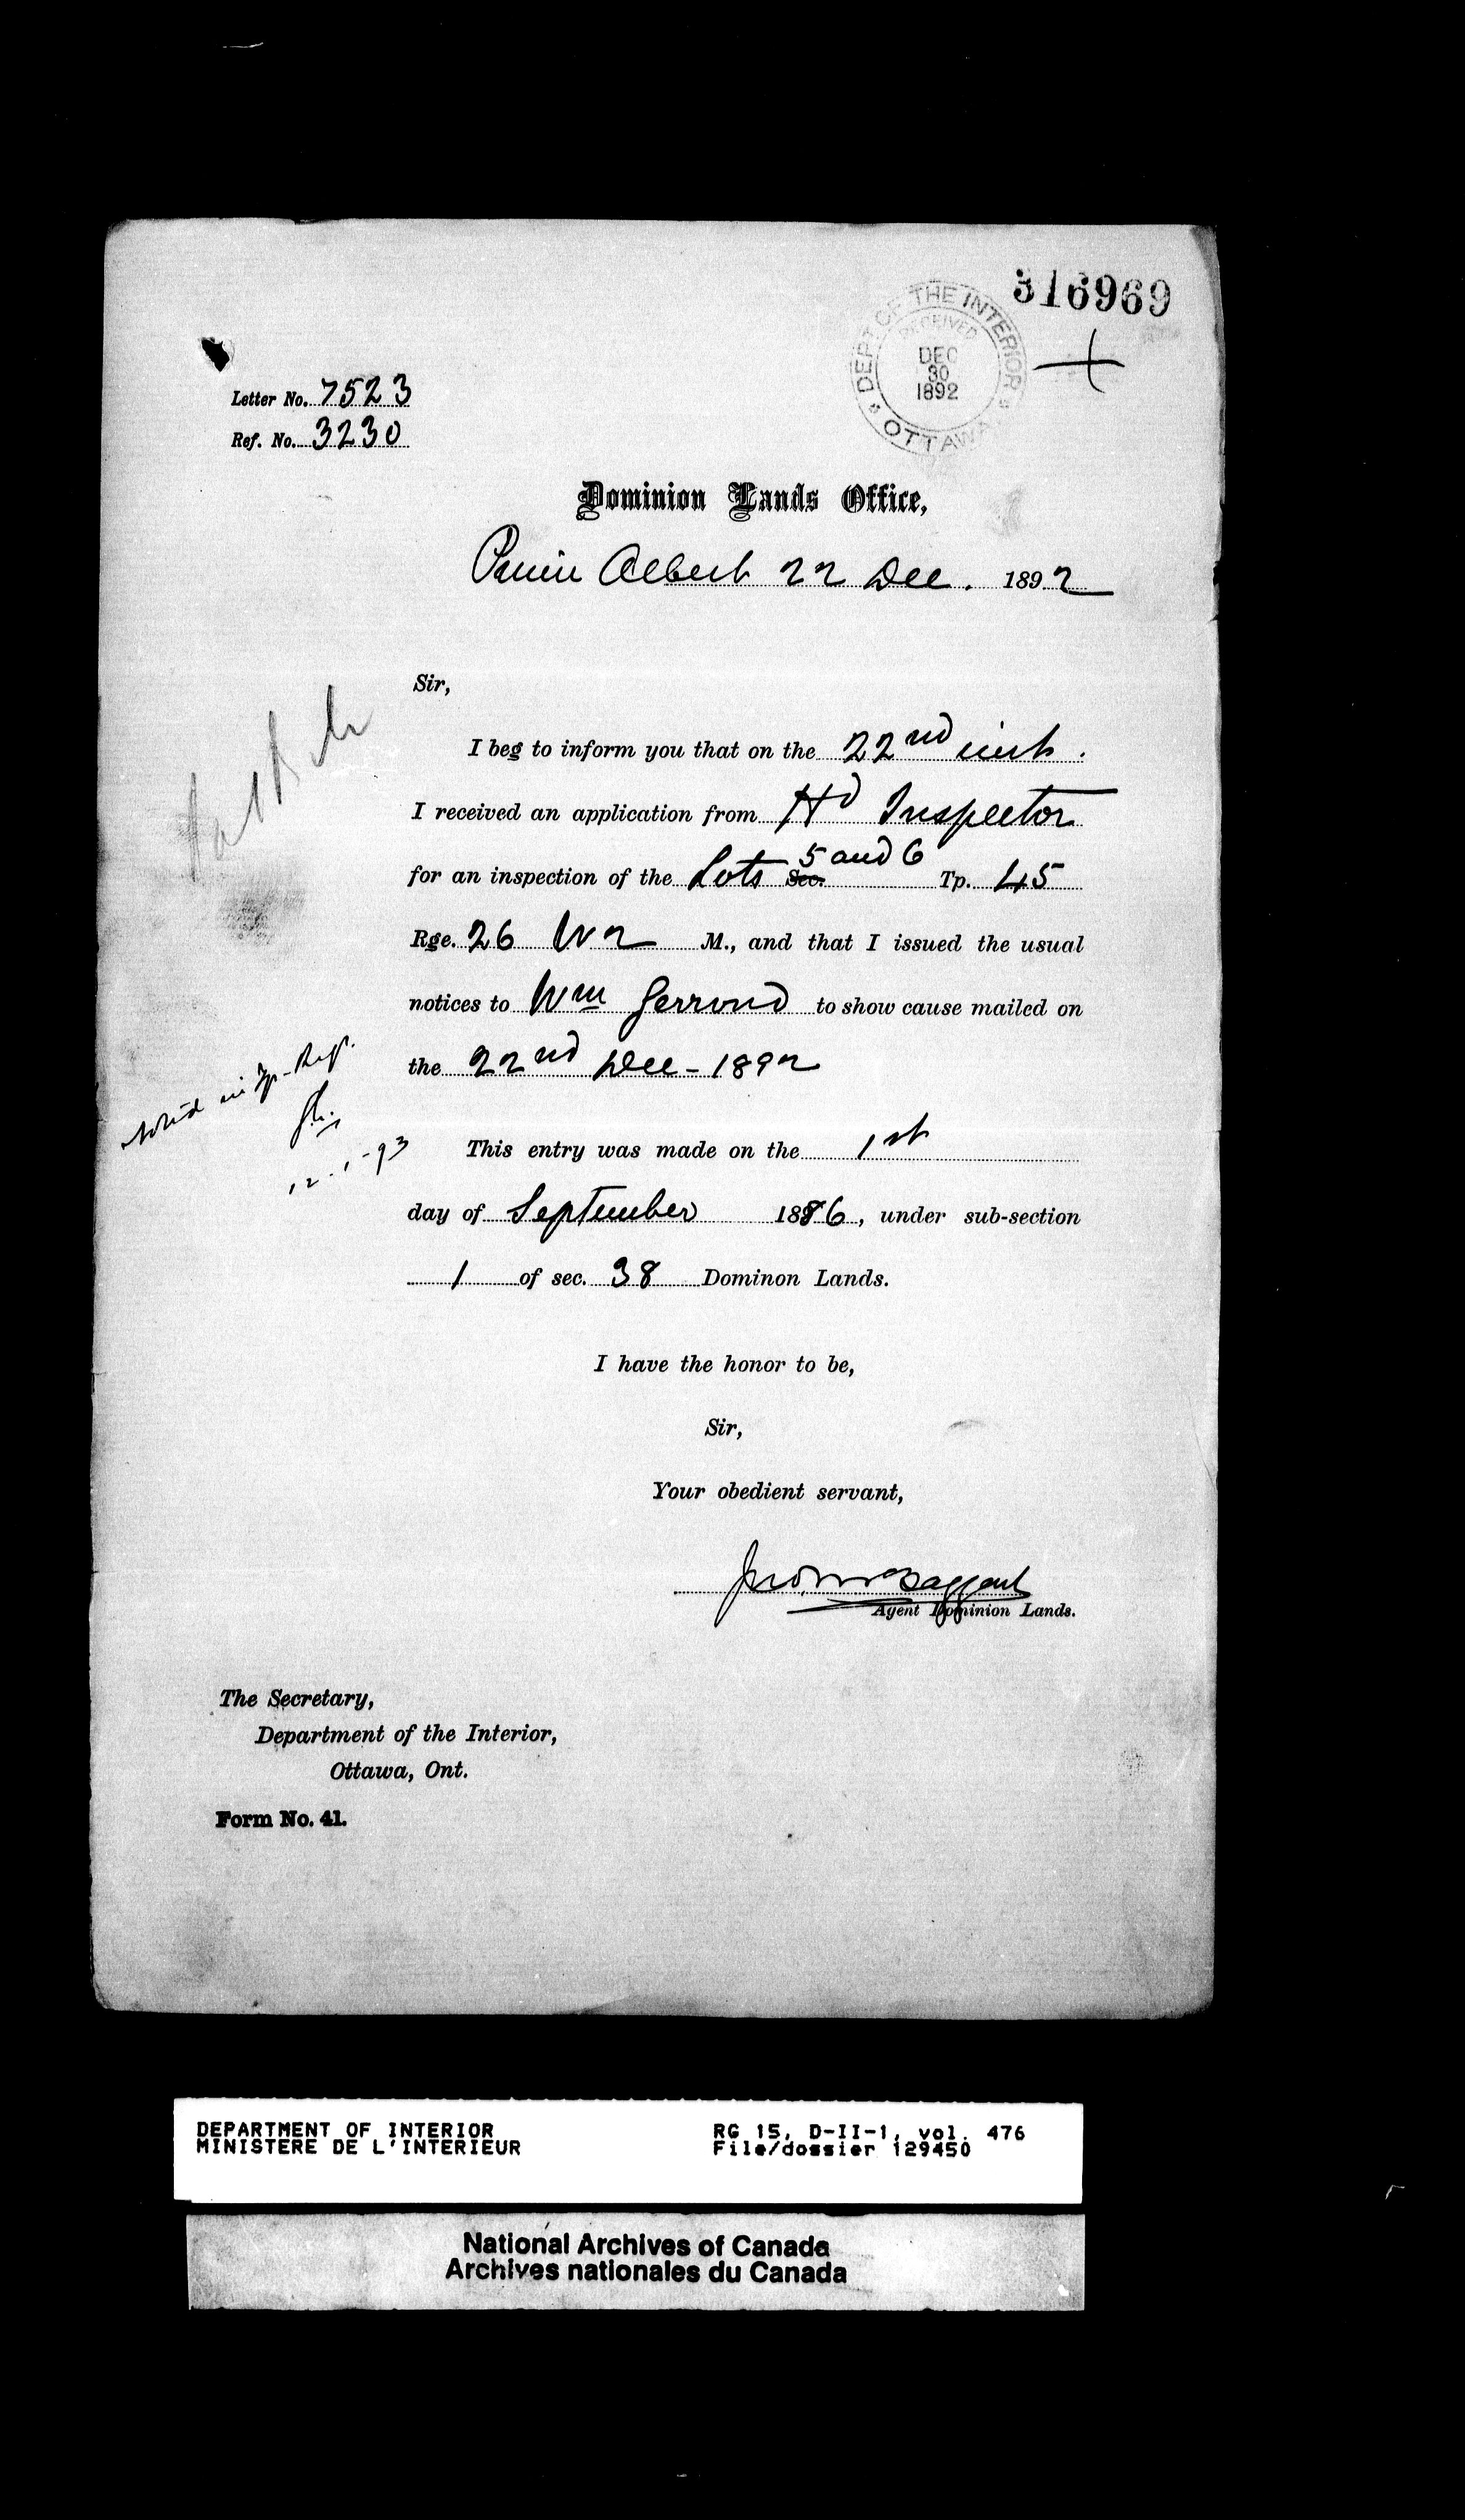 316969
DEPT OF THE INTERIOR
RECEIVED
DEC
30
1892
OTTAWA
Letter No. 7523
Ref. No. 3230
Dominion Lands Office,
Prince Albert 22 Dec. 1892
Sir,
I beg to inform you that on the 22nd inst.
I received an application from Hd Inspector
for an inspection of the Lots Sec. 5 and 6 Tp. 45
Rge. 26 W 2 M., and that I issued the usual
notices to Wm Gerrond to show cause mailed on
the 22nd Dec - 1892
Noted in Tp-Regr.
12-1-93
This entry was made on the 1st
day of September 1886, under sub-section
1 of sec. 38 Dominon Lands.
I have the honor to be,
Sir,
Your obedient servant,
Agent Dominion Lands.
The Secretary,
Department of the Interior,
Ottawa, Ont.
Form No. 41.
DEPARTMENT OF INTERIOR
MINISTERE DE L'INTERIEUR
RG 15, D-II-1, vol. 476
File/dossier 129450
National Archives of Canada
Archives nationales du Canada